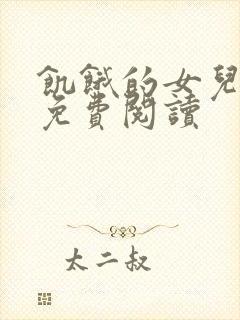 飢餓的女兒
免費閱讀
太二叔